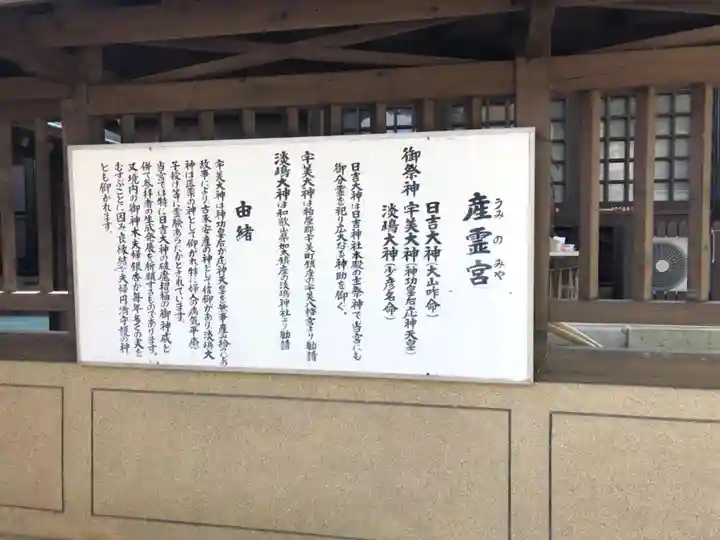 産霊宮
うみのみや
御祭神
日吉大神(大山咋命)
宇美大神(神功皇后応神天皇)
淡嶋大神(少彦名命)
日吉大神は日吉神社本殿の主祭神で当宮にも
御分霊を祀り広大なる神助を仰ぐ、
宇美大神は粕屋郡宇美町鎮座の宇美八幡宮より勧請
淡嶋大神は和歌山県加太鎮座の淡嶋神社より勧請
由緒
宇美大神は神功皇后が応神天皇を無事産み給いたる
故事により古来安産の神として信仰があり淡嶋大
神は医薬の神として仰がれ特に婦人の病気平癒、
子授け等に霊験あらたかとされています。
当宮では特に日吉大神の破魔招福の御神威と
併て参拝者の生成発展を祈願するものであります。
又境内の御神木夫婦銀杏が毎年多くの実を
むすぶことに因み良縁結び夫婦円満守護の神
とも仰がれます。